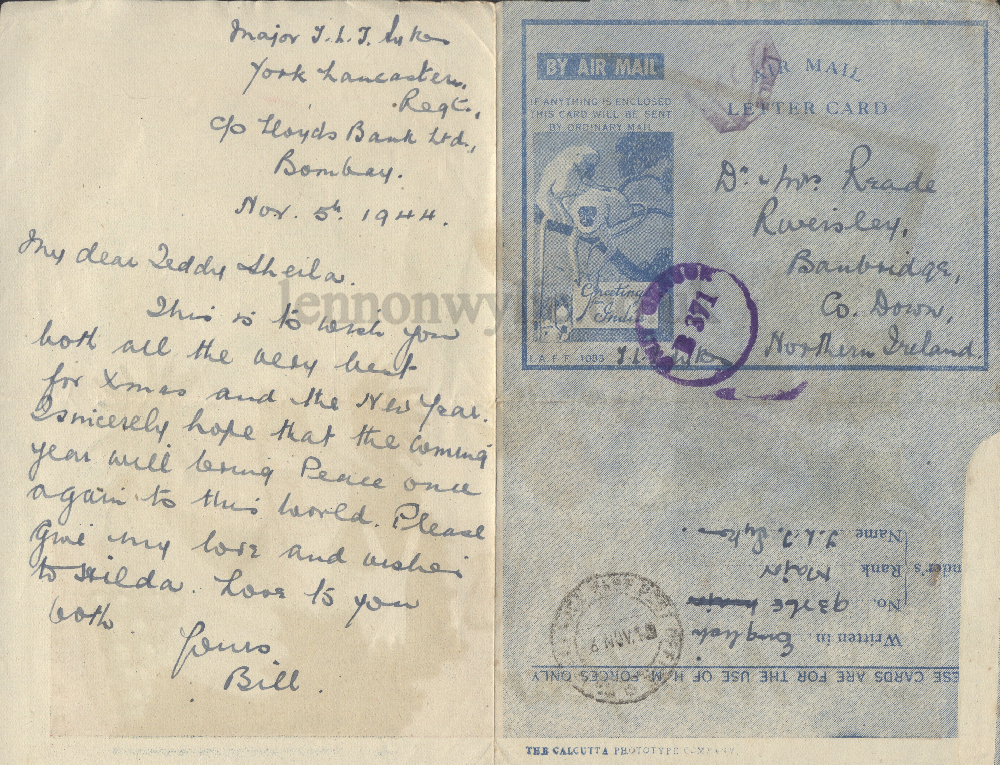 Major T.L.T. Sykes
York Lancaster.
Regt.,
c/o Lloyds Bank Ltd.,
Bombay.
Nov. 5th. 1944.
My dear Teddy Sheila.
This is to wish you
both all the very best
for Xmas and the New Year.
I sincerely hope that the coming
year will bring Peace once
again to this World. Please
Give my love and wishes
to Hilda. Love to you
both.
Yours
Bill.
lennonwyl
BY AIR MAIL
IF ANYTHING IS ENCLOSED
THIS CARD WILL BE SENT
BY ORDINARY MAIL
AIR MAIL
LETTER CARD
Dr & Mrs Reade
Riversley,
Banbridge,
Co. Down,
Northern Ireland.
Greetings
India
I.A.F.F. 1085 T.L. Sykes
B 371
Name T.L.T. Sykes.
nder's Rank Major
No. 93765
Written in English
ESE CARDS ARE FOR THE USE OF H. M. FORCES ONLY
THE CALCUTTA PHOTOTYPE COMPANY.